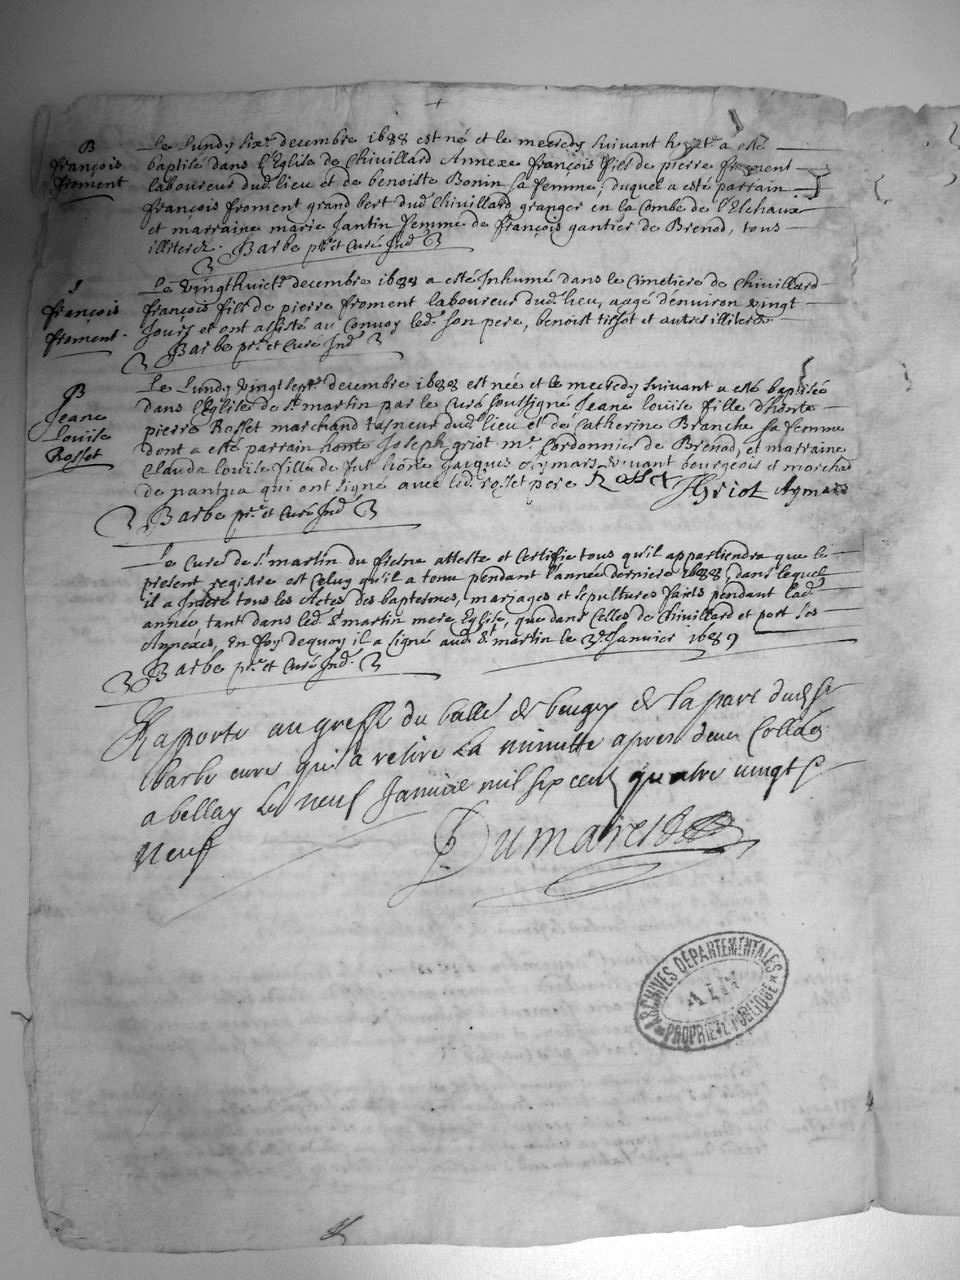 B
françois
froment
Le Lundy six.e decembre 1688 est né et le mecredy suivant huict.e a esté
baptisé dans l'Eglise de Chivillard Annexe françois fils de pierre froment
laboureur dud. lieu et de benoiste Bonin sa femme, duquel a esté parrain
françois froment grand vert dud. Chivillard granger en la Combe de l'Elchaux
et marraine marie Jantin femme de françois gantier de Brenod, tous
illiterez. Barbe p.re et Curé Ind.
S
françois
froment.
Le vingthuict.e decembre 1688 a esté Inhumé dans le Cimetiere de Chivillard
françois fils de pierre froment laboureur dud. lieu, aagé denviron vingt
Jours et ont assisté au Convoy led. son pere, benoist tissot et autres illiterés
Barbe p.re et Curé Ind.
B
Jeane
Louise
Rosset
Le Lundy vingt sept.e decembre 1688 est née et le mecredy suivant a esté baptisée
dans l'Eglise de S.t martin par le Curé soussigné Jeane louise fille d'honte
pierre Rosset marchand taneur dud. lieu et de Catherine Branche sa femme
dont a esté parrain honte Joseph griot m.e Cordonnier de Brenod, et marraine
Clauda louise fille de fut honte Jacques Aymars vivant bourgeois et marchd
de nantua qui ont signé avec led. rosset pere Rosset JGriot Aymars
Barbe p.re et Curé Ind.
Le Curé de S.t martin du fresne atteste et Certifie tous qu'il appartiendra que le
present registre est Celuy qu'il a tenu pendant l'année derniere 1688, dans lequel
il a Inseré tous les Actes des baptesmes, mariages et sepultures faits pendant lad.
année tant dans led. S.t martin mere Eglise, que dans Celles de Chivillard et port ses
Annexes, En foy dequoy il a signé aud. S.t martin le 3.e Janvier 1689
Barbe p.re et Curé Ind.
Raporté au greffe du balle de beugey de la part dud. Sr
barbe curé qui a retiré La minutte apres deue Colla.on
a bellay le neuf Janvier mil six cent quatre vingt
neuf
Dumarest
ARCHIVES DÉPARTEMENTALES
AIN
PROPRIÉTÉ PUBLIQUE